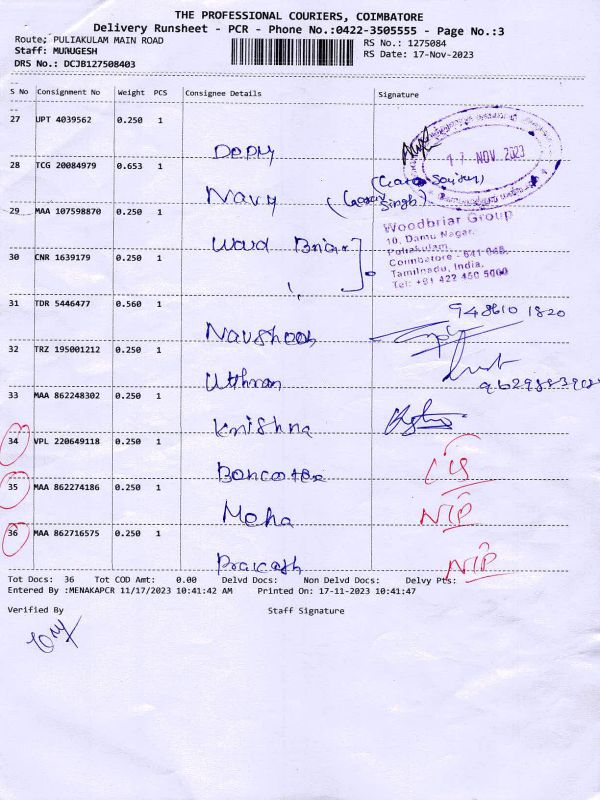 THE PROFESSIONAL COURIERS, COIMBATORE
Delivery Runsheet - PCR - Phone No.:0422-3505555 - Page No.:3
Route: PULIAKULAM MAIN ROAD
RS No.: 1275084
Staff: MURUGESH
RS Date: 17-Nov-2023
DRS No.: DCJB127508403
S No Consignment No Weight PCS Consignee Details Signature
27 UPT 4039562 0.250 1
17 NOV 2023
28 TCG 20084979 0.653 1
Navy
Singh)
29 MAA 107598870 0.250 1
Woodbriar Group
10, Damu Nagar,
Puliakulam,
Coimbatore - 641 045,
Tamilnadu, India.
Tel: +91 422 450 5000
30 CNR 1639179 0.250 1
31 TDR 5446477 0.560 1
948610 1820
32 TRZ 195001212 0.250 1
33 MAA 862248302 0.250 1
Krishna
34 VPL 220649118 0.250 1
35 MAA 862274186 0.250 1
Moha
36 MAA 862716575 0.250 1
Prakash
Tot Docs: 36 Tot COD Amt: 0.00 Delvd Docs: Non Delvd Docs: Delvy Pts:
Entered By :MENAKAPCR 11/17/2023 10:41:42 AM Printed On: 17-11-2023 10:41:47
Verified By Staff Signature